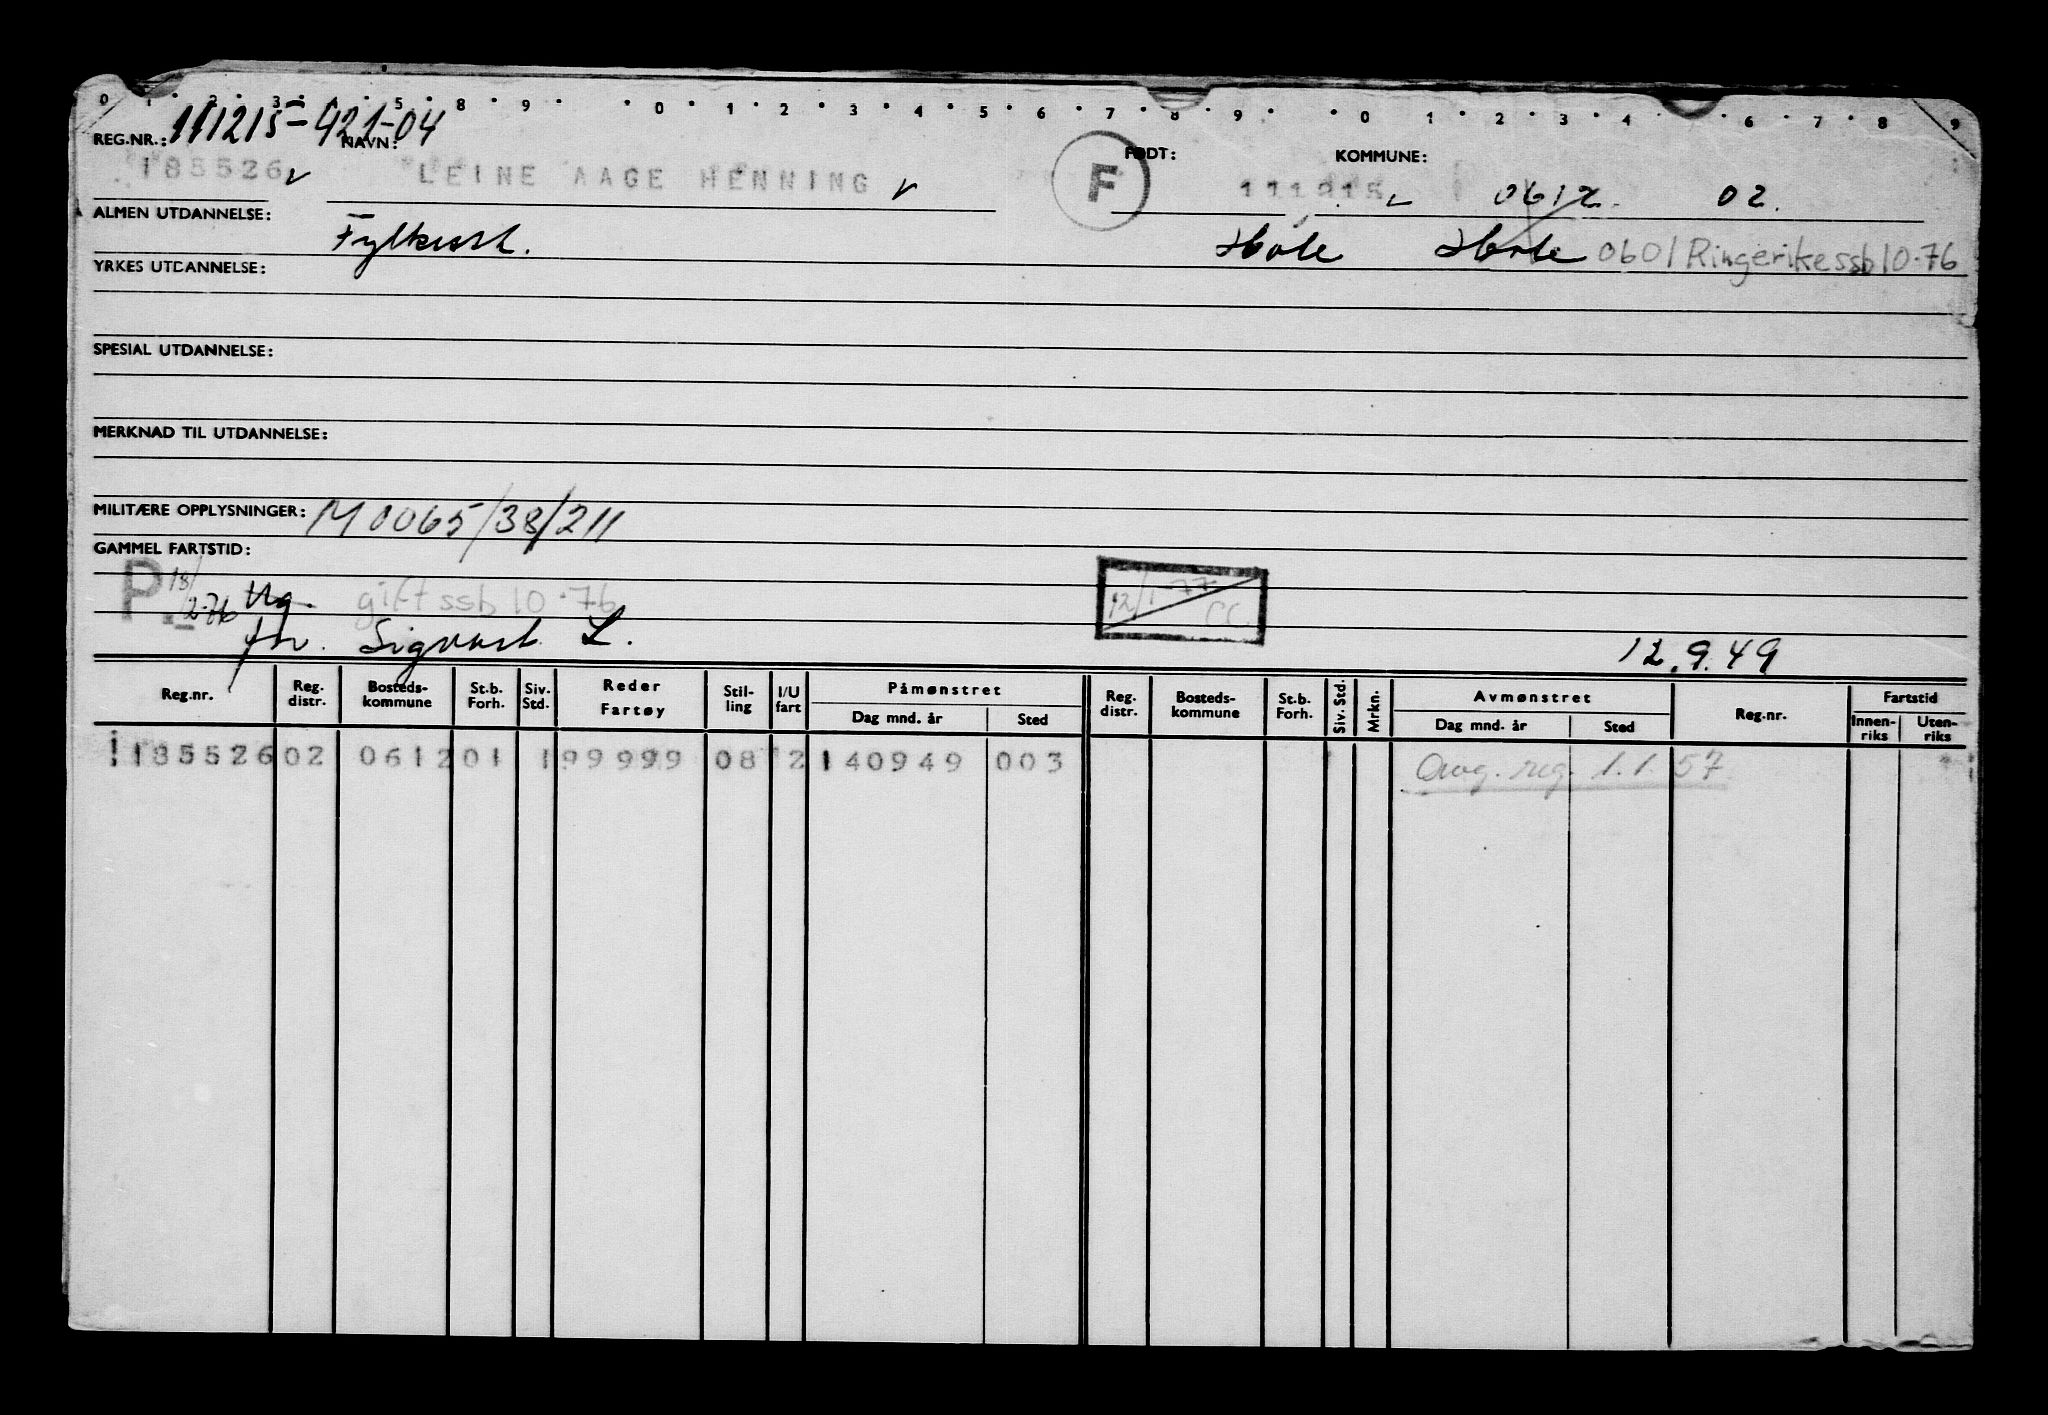 0 1 2 3 5 8 9 0 1 2 3 4 5 6 7 8 9 0 1 2 3 4 6 7 8 9
REG.NR.: 111215-421-04 NAVN: FØDT: KOMMUNE:
185526 v LEINE AAGE HENNING v F 111215 0612 02.
ALMEN UTDANNELSE: Fylkessk. Hole Hole 0601 Ringerike ssb 10.76
YRKES UTDANNELSE:
SPESIAL UTDANNELSE:
MERKNAD TIL UTDANNELSE:
MILITÆRE OPPLYSNINGER: M 0065/38/211
GAMMEL FARTSTID:
P. 18/2-76 Ug. gift ssb 10.76 12/1-77
fhv. Sigvart L. 12.9.49
Reg.nr. Reg. distr. Bosteds-kommune St.b. Forh. Siv. Std. Reder Fartøy Stil-ling I/U fart Påmønstret Dag mnd. år Sted Reg. distr. Bosteds-kommune St.b. Forh. Siv. Std. Mrkn. Avmønstret Dag mnd. år Sted Reg.nr. Fartstid Innen-riks Uten-riks
185526 02 0612 01 1 99999 08 2 140949 003 reg. 1.1.57